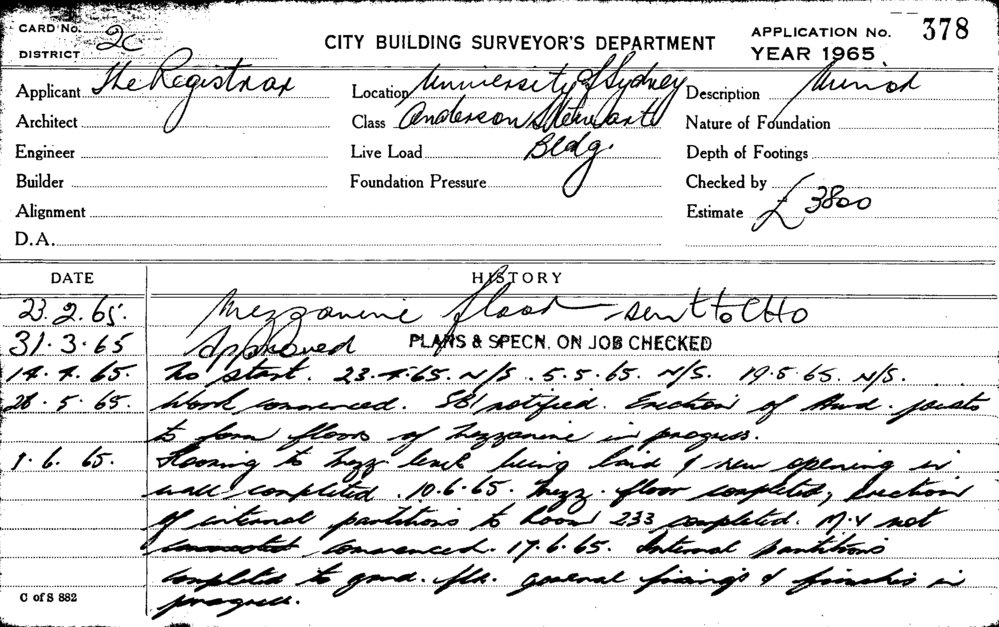 CARD No. 2C
DISTRICT
CITY BUILDING SURVEYOR'S DEPARTMENT
APPLICATION No. 378
YEAR 1965
Applicant The Registrar
Location University of Sydney
Description Minor
Architect
Class Anderson Stewart
Nature of Foundation
Engineer
Live Load Bldg.
Depth of Footings
Builder
Foundation Pressure
Checked by
Alignment
Estimate £ 3800
D.A.
DATE HISTORY
23.2.65. Mezzanine floor - sent to CHO
31.3.65 Approved PLANS & SPECN. ON JOB CHECKED
14.4.65. No start. 23.4.65. N/S. 5.5.65. N/S. 19.5.65. N/S.
28.5.65. Work commenced. SBI notified. Erection of Hwd. joists
to form floors of mezzanine in progress.
1.6.65. Flooring to mezz level being laid & new opening in
wall completed. 10.6.65. Mezz. floor completed, erection
of internal partitions to Room 233 completed. M.V not
commenced. 17.6.65. Internal partitions
completed to grnd. flr. general fixings & finishes in
progress.
C of S 882